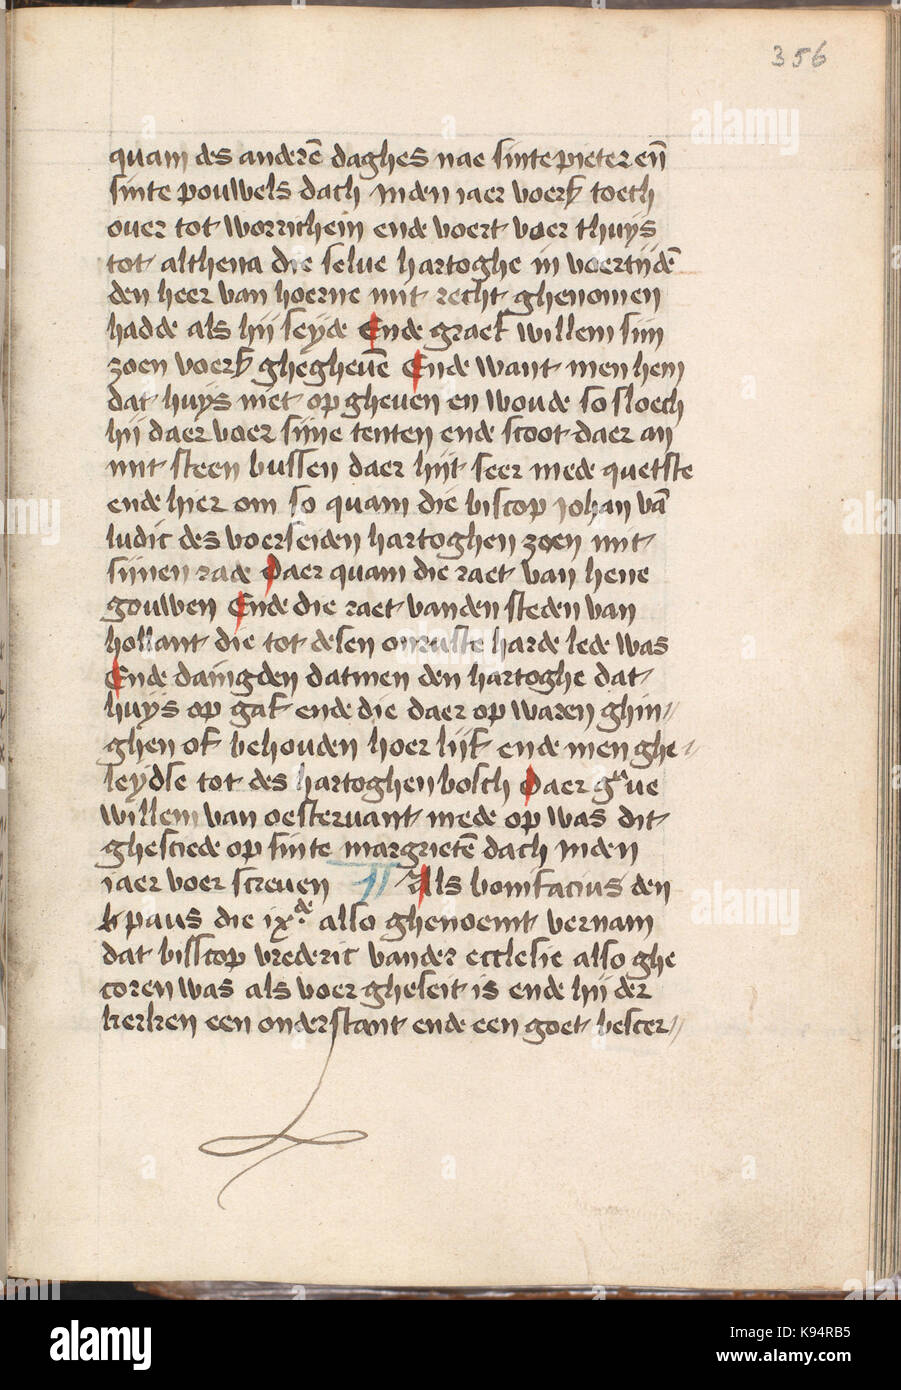 356
quam des anderē daghes nae sinte pieter eñ
sinte pouwels dach inden iaer voerß toech
ouer tot worrichein ende voert voer thuys
tot althena die selue hartoghe in voertijdē
den heer van hoerne mit recht ghenomen
hadde als hij seyde Ende graef willem sijn
zoen voerß ghegheuē Ende want men hem
dat huys niet op gheuen en woude so sloech
hij daer voer sijne tenten ende scoot daer an
mit steen bussen daer hijt seer mede quetste
ende hier om so quam die biscop johan vā
ludic des voerseiden hartoghen zoen mit
sijnen rade Daer quam die raet van hene
gouwen Ende die raet vanden steden van
hollant die tot desen onruste harde lede was
Ende daingden datmen den hartoghe dat
huys op gaf ende die daer op waren ghin//
ghen of behouden hoer lijf ende men ghe//
leydse tot des hartoghen bosch Daer gᵃue
willem van oesteruant mede op was dit
ghesciede op sinte margrietē dach inden
iaer voer screuen ¶ Als bonifacius den
paus die ixᵈᵉ also ghenoemt vernam
dat bisscop vrederic vander ecclesie also ghe
coren was als voer gheseit is ende hij der
kerken een onderstant ende een goet bescer//
alamy
a
alamy stock photo
K94RB5